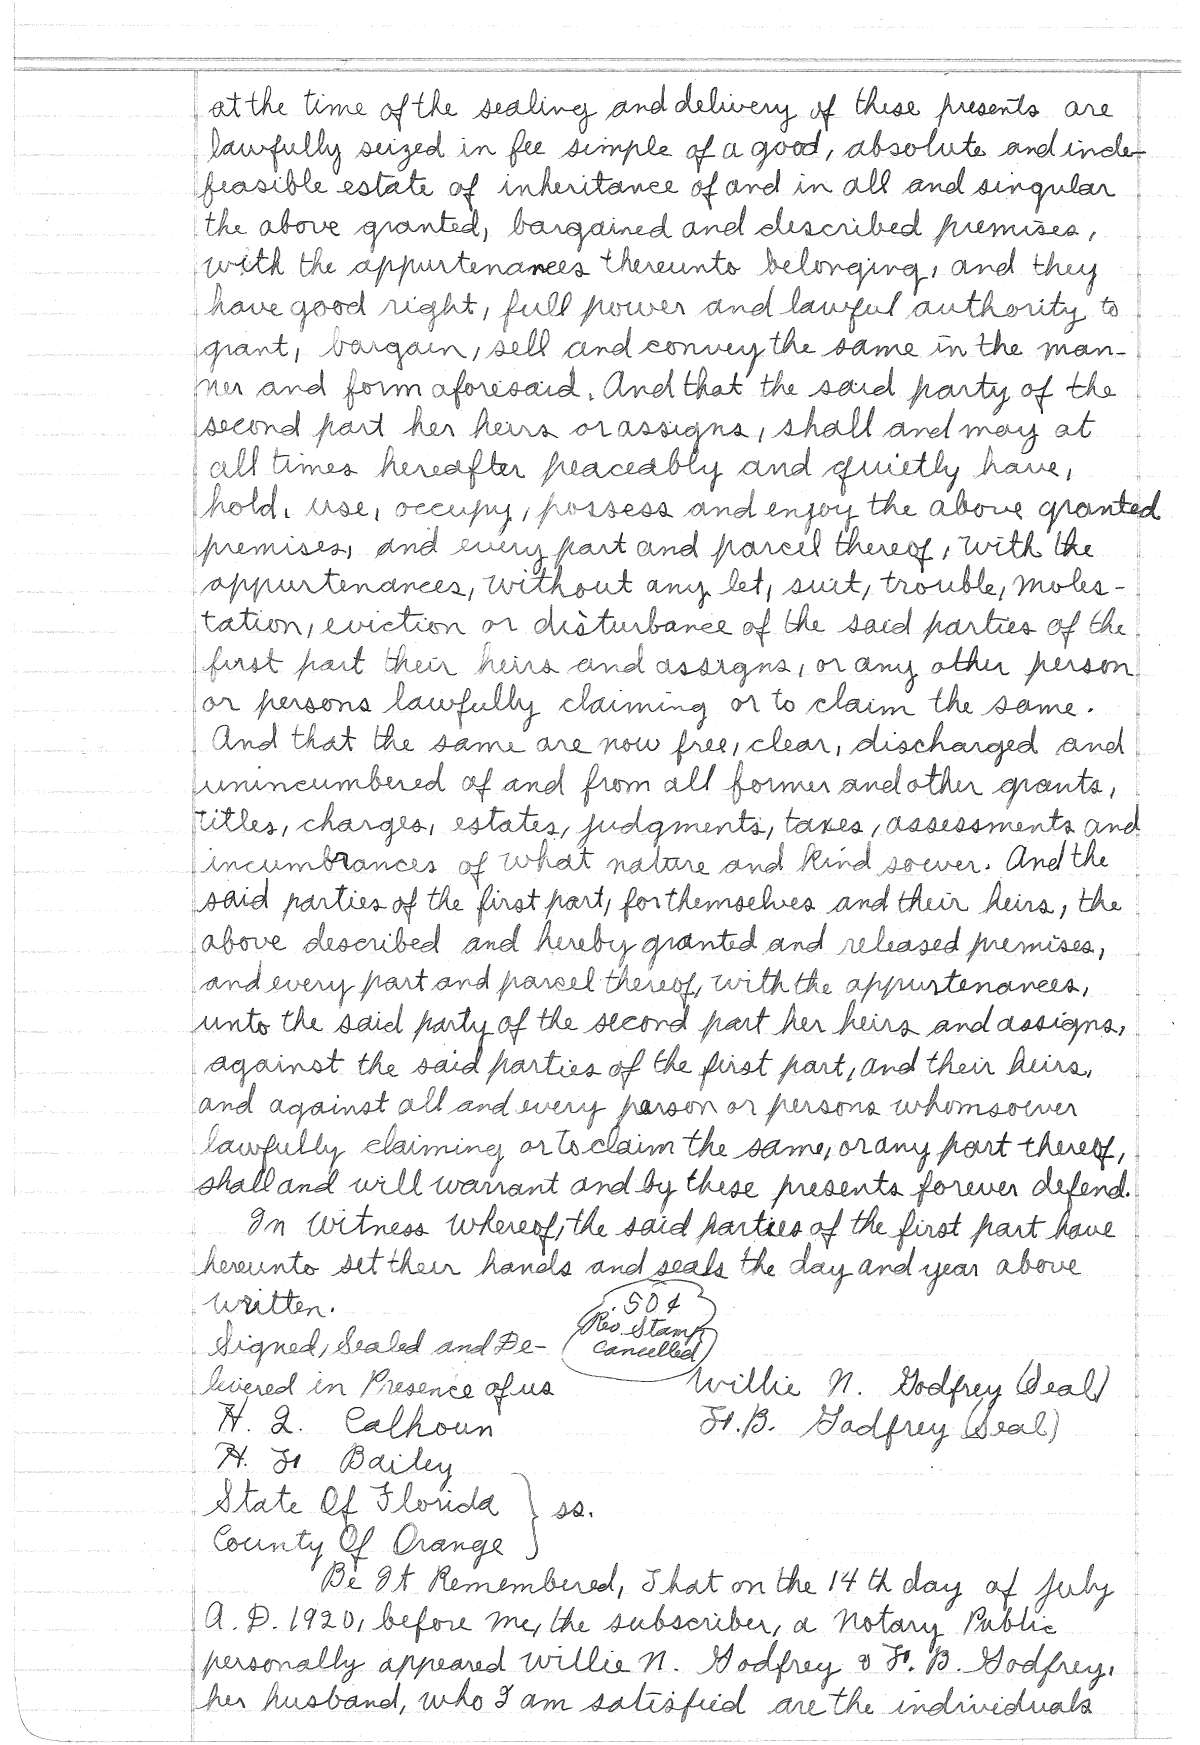 at the time of the sealing and delivery of these presents are
lawfully seized in fee simple of a good, absolute and inde-
feasible estate of inheritance of and in all and singular
the above granted, bargained and described premises,
with the appurtenances thereunto belonging, and they
have good right, full power and lawful authority to
grant, bargain, sell and convey the same in the man-
ner and form aforesaid. And that the said party of the
second part her heirs or assigns, shall and may at
all times hereafter peaceably and quietly have,
hold, use, occupy, possess and enjoy the above granted
premises, and every part and parcel thereof, with the
appurtenances, without any let, suit, trouble, moles-
tation, eviction or disturbance of the said parties of the
first part their heirs and assigns, or any other person
or persons lawfully claiming or to claim the same.
And that the same are now free, clear, discharged and
unincumbered of and from all former and other grants,
titles, charges, estates, judgments, taxes, assessments and
incumbrances of what nature and kind soever. And the
said parties of the first part, for themselves and their heirs, the
above described and hereby granted and released premises,
and every part and parcel thereof, with the appurtenances,
unto the said party of the second part her heirs and assigns,
against the said parties of the first part, and their heirs,
and against all and every person or persons whomsoever
lawfully claiming or to claim the same, or any part thereof,
shall and will warrant and by these presents forever defend.
In Witness Whereof, the said parties of the first part have
hereunto set their hands and seals the day and year above
written.
50¢
Rev. Stamp
Cancelled
Signed, Sealed and De-
livered in Presence of us
Willie N. Godfrey (Seal)
H. L. Calhoun
F. B. Godfrey (Seal)
H. F. Bailey
State Of Florida } ss.
County Of Orange
Be It Remembered, That on the 14th day of July
A. D. 1920, before me, the subscriber, a Notary Public
personally appeared Willie N. Godfrey & F. B. Godfrey,
her husband, who I am satisfied are the individuals